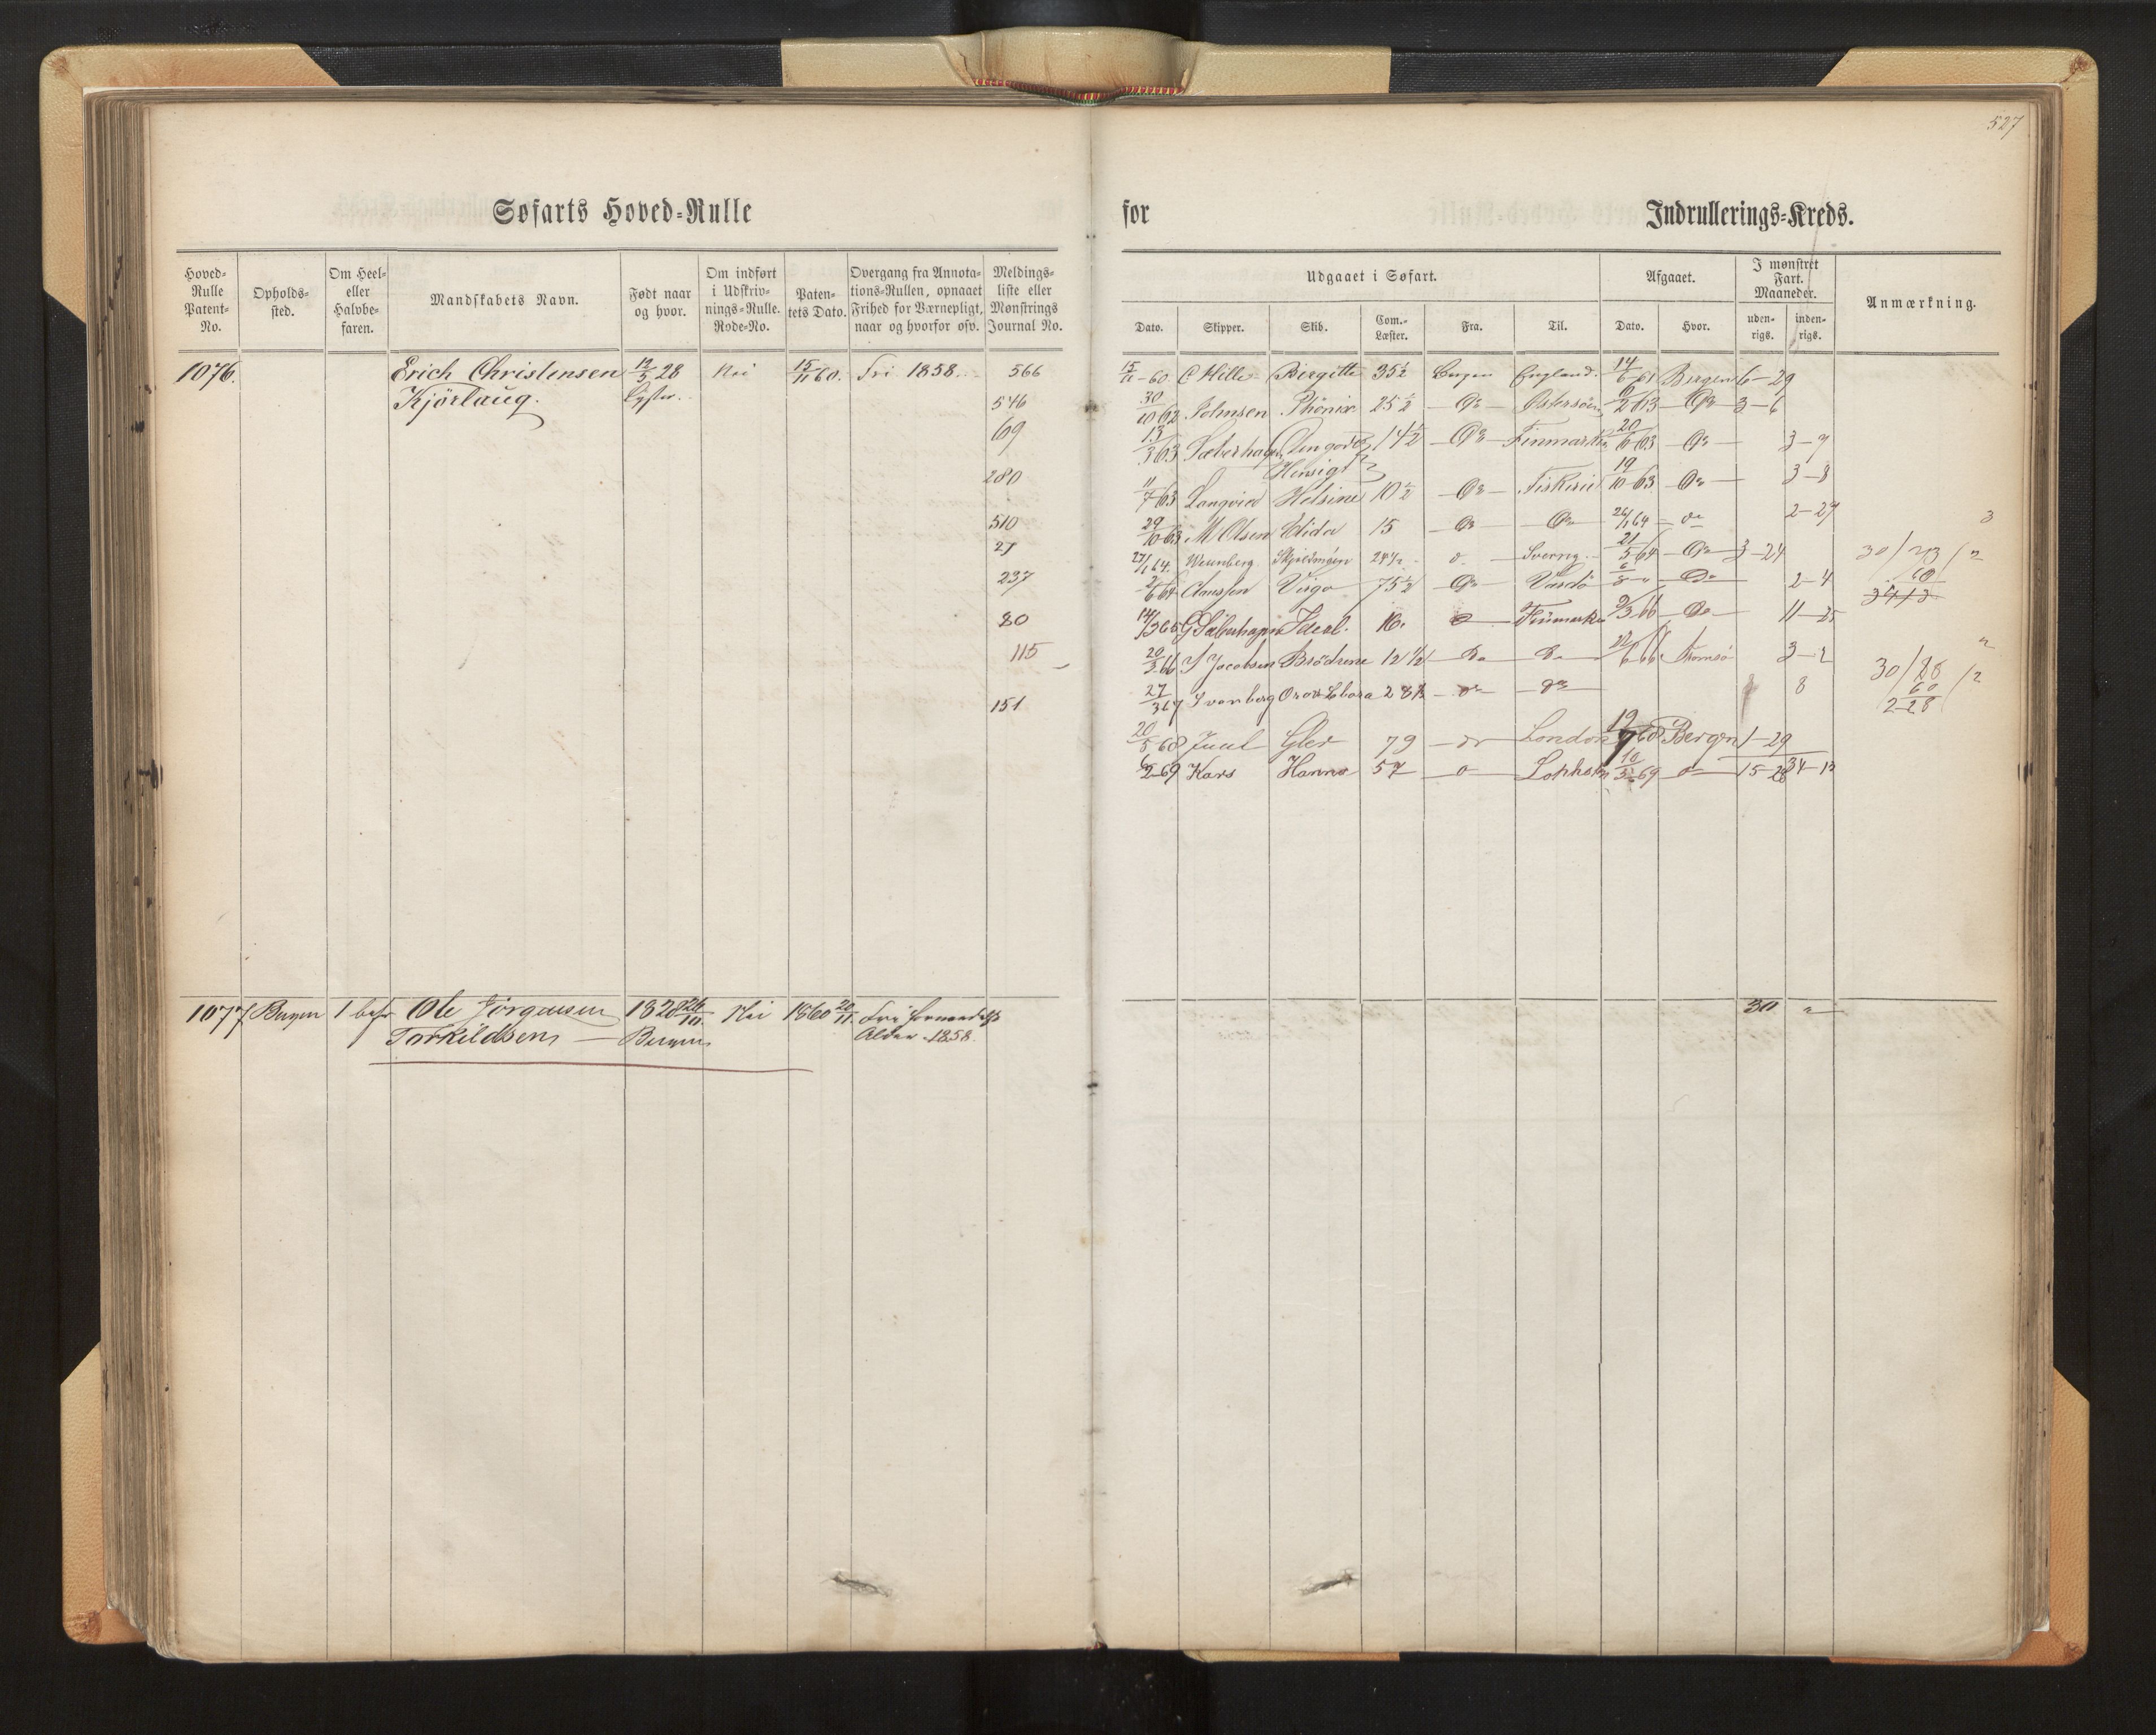 527
Søfarts Hoved-Rulle for Indrullerings-Kreds.
Hoved-Rulle Patent-No. Opholds-sted. Om Heel- eller Halvbe-faren. Mandskabets Navn. Født naar og hvor. Om indført i Udskriv-nings-Rulle. Rode-No. Paten-tets Dato. Overgang fra Annota-tions-Rullen, opnaaet Frihed for Værnepligt, naar og hvorfor osv. Meldings-liste eller Mønstrings Journal No.
Udgaaet i Søfart. Afgaaet. I mønstret Fart. Maaneder. Anmærkning.
Dato. Skipper. Skib. Com.-Læster. Fra. Til. Dato. Hvor. uden-rigs. inden-rigs.
1076. Erich Christensen 12/5 28 Nei 15/11 60. Fri 1858. 566
Kjörlaug. Lyster.
15/11-60 C Hille Birgitte 35½ Bergen England. 14/6-61 Bergen 6-29
546 30/10 62 Phönix 25½ Do Østersöen 6/2 63 Do 3-6
69 13/3 63 14½ Do Finmarken 20/6 63 Do 3-9
Hensigt
280 11/7 63 10½ Do Fiskeri 19/10 63 Do 3-8
510 29/10 63 M Olsen Elida 15 Do Do 26/1 64 do 2-29
27 27/1 64. 24½ Sverrig. 21/5 64 Do 3-24
237 2/6 64 Claussen Virgo 75½ Do Vardö 6/8 Do 2-4
80 14/3 65 Ideal. 16. Do Finmarken 9/3 66 Do 11-25
115 20/3 66 J Jacobsen Brödrene 12½ Do Do 22/6 66 Tromsö 3-2
151 27/3 67 28½ do do 8
20/5 68 Juul 79 do London 19/7 68 Bergen 1-29
6/2-69 Hanna 57 10/3 69 15-28 34-13
3
30/73/2
60
30/88/2
60
2-28
1077 Bergen 1 Ole Jörgensen 1828 26/10. Nei 1860 20/11. Fri formedelst 30 "
Torkildsen Bergen Alder 1858.